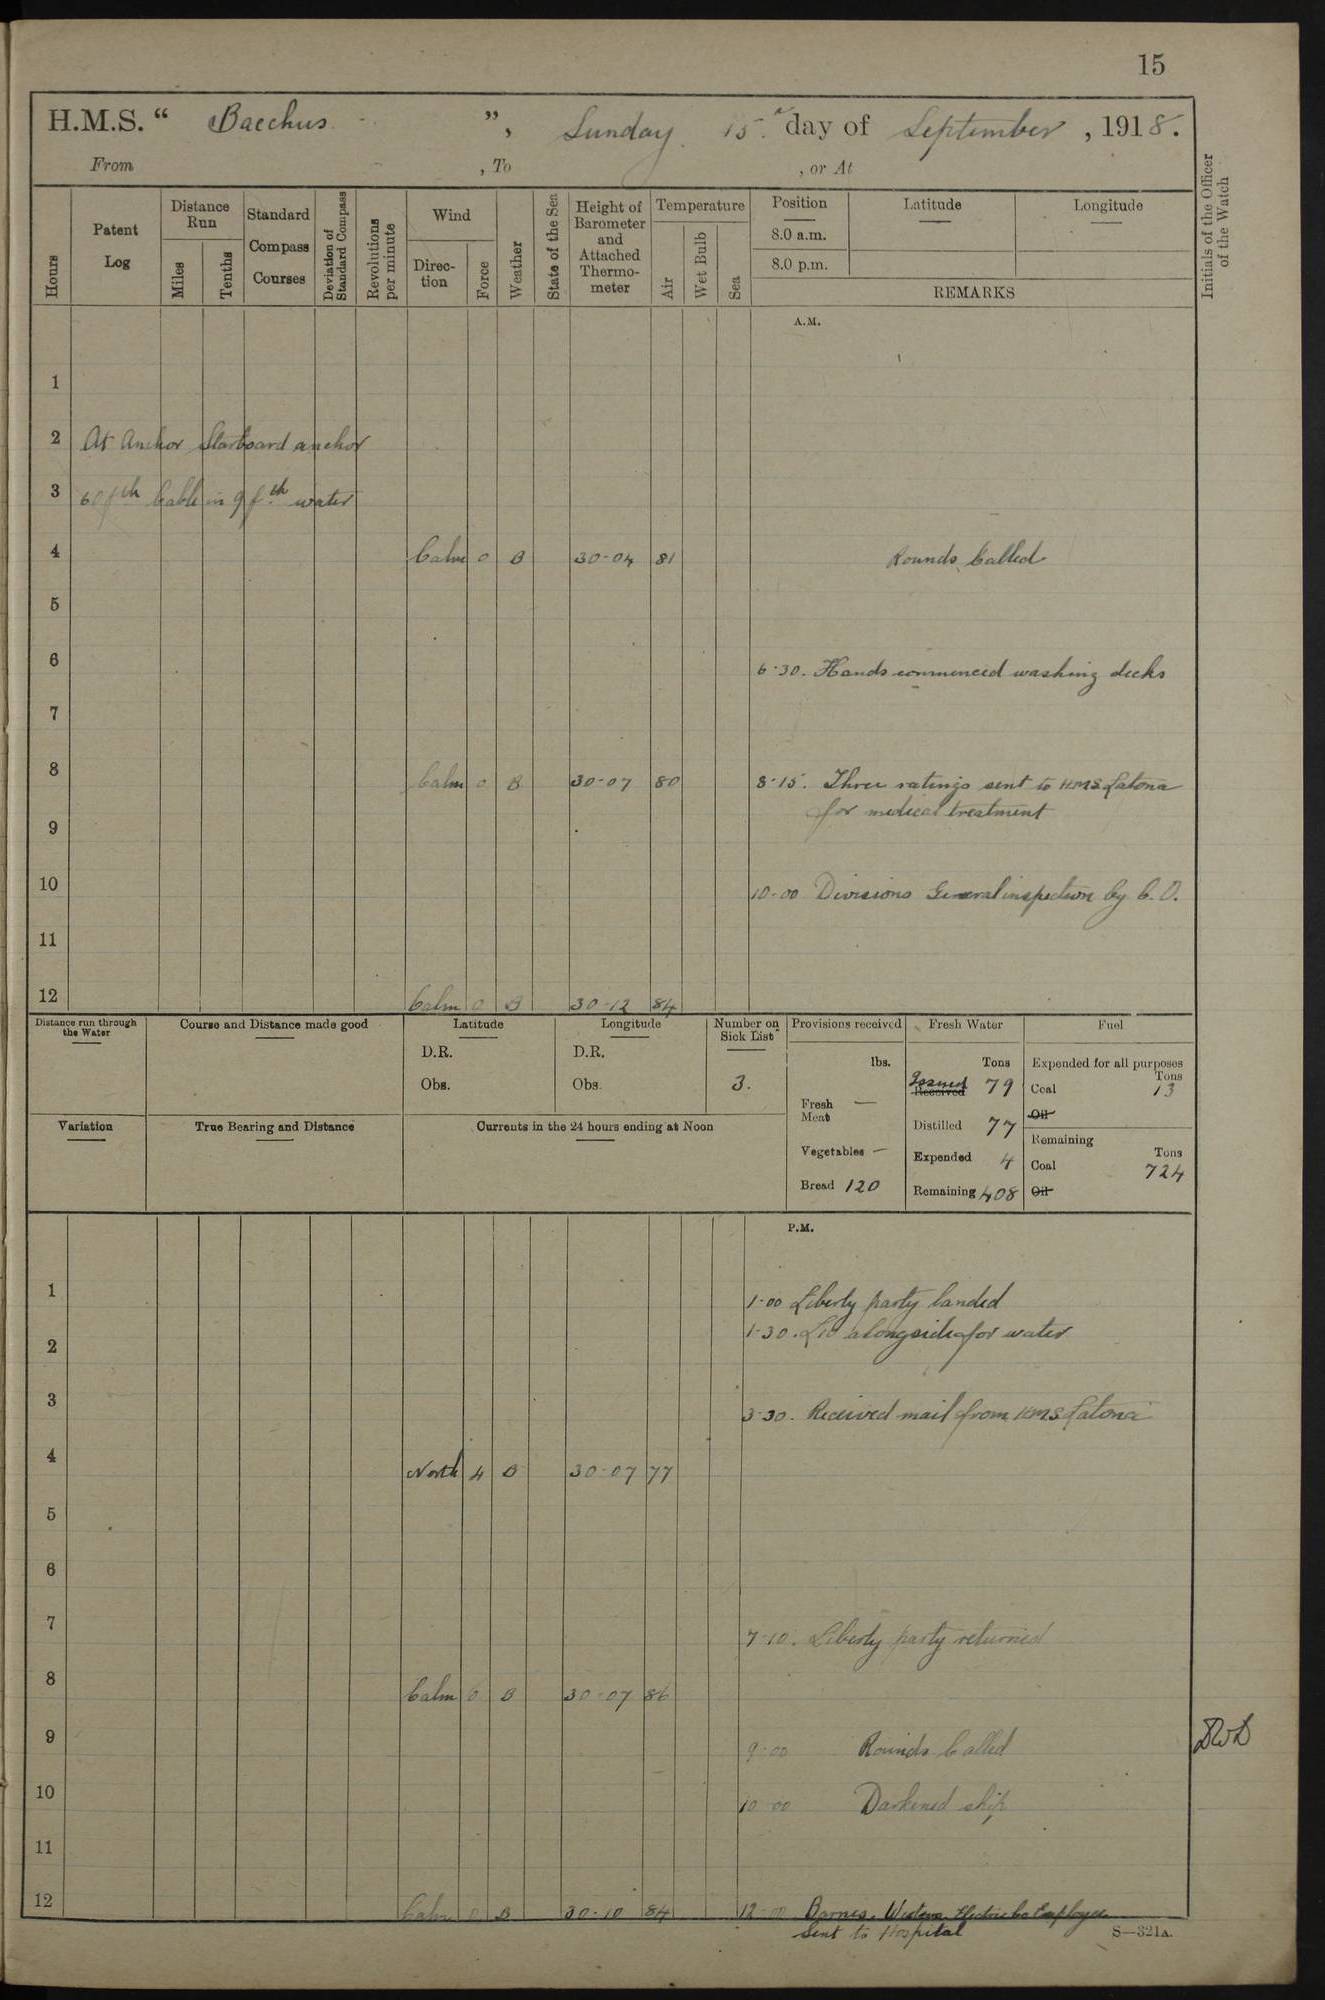 15
H.M.S. “ Bacchus ”, Sunday 15th day of September, 1918.
From , To , or At
Hours
Patent Log
Distance Run
Miles
Tenths
Standard Compass Courses
Deviation of Standard Compass
Revolutions per minute
Wind
Direction
Force
Weather
State of the Sea
Height of Barometer and Attached Thermometer
Temperature
Air
Wet Bulb
Sea
Position
8.0 a.m.
8.0 p.m.
Latitude
Longitude
REMARKS
Initials of the Officer of the Watch
A.M.
1
2 At Anchor Starboard anchor
3 60 fth Cable in 9 fth water
4 Calm 0 B 30-04 81 Rounds Called
5
6 6-30. Hands commenced washing decks
7
8 Calm 0 B 30-07 80 8-15. Three ratings sent to HMS Latona
for medical treatment
9
10 10-00 Divisions General inspection by C.O.
11
12 Calm 0 B 30-12 84
Distance run through the Water
Course and Distance made good
Latitude
D.R.
Obs.
Longitude
D.R.
Obs.
Number on Sick List
3.
Variation
True Bearing and Distance
Currents in the 24 hours ending at Noon
Provisions received
lbs.
Fresh Meat —
Vegetables —
Bread 120
Fresh Water
Tons
Issued Received 79
Distilled 77
Expended 4
Remaining 408
Fuel
Expended for all purposes
Tons
Coal 13
Oil
Remaining
Tons
Coal 724
Oil
P.M.
1 1-00 Liberty party landed
1-30. alongside for water
2
3 3-30. Received mail from HMS Latona
4 North 4 B 30-07 77
5
6
7 7-10. Liberty party returned
8 Calm 0 B 30-07 86
9 9-00 Rounds Called DWD
10 10-00 Darkened ship
11
12 Calm 0 B 30-10 84 12-00 Barnes. Western Electric Co Employee
Sent to Hospital
S—321A.